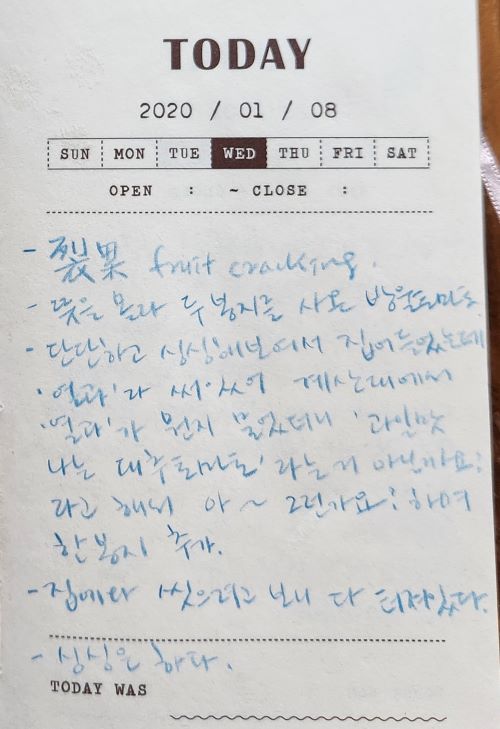 TODAY
2020 / 01 / 08
SUN MON TUE WED THU FRI SAT
OPEN : ~ CLOSE :
- 裂果 fruit cracking.
- 뜻을 몰라 두 봉지를 사온 방울토마토
- 단단하고 싱싱해보여서 집어들었는데
'열과'라 써있어 계산대에서
'열과'가 뭔지 물었더니 '과일맛
나는 대추토마토'라는거 아닐까요?
라고 해서 아~ 그런가요? 하며
한봉지 추가.
- 집에와 씻으려고 보니 다 터져있다.
- 싱싱은 하다.
TODAY WAS